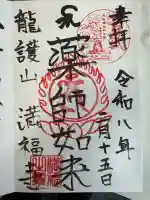 奉拝
令和八年
二月十五日
薬師如来
龍護山
満福寺